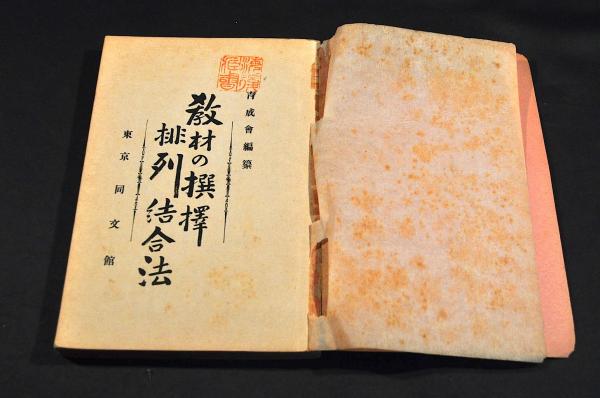 育成會編纂
教材の撰擇
排列結合法
東京同文館